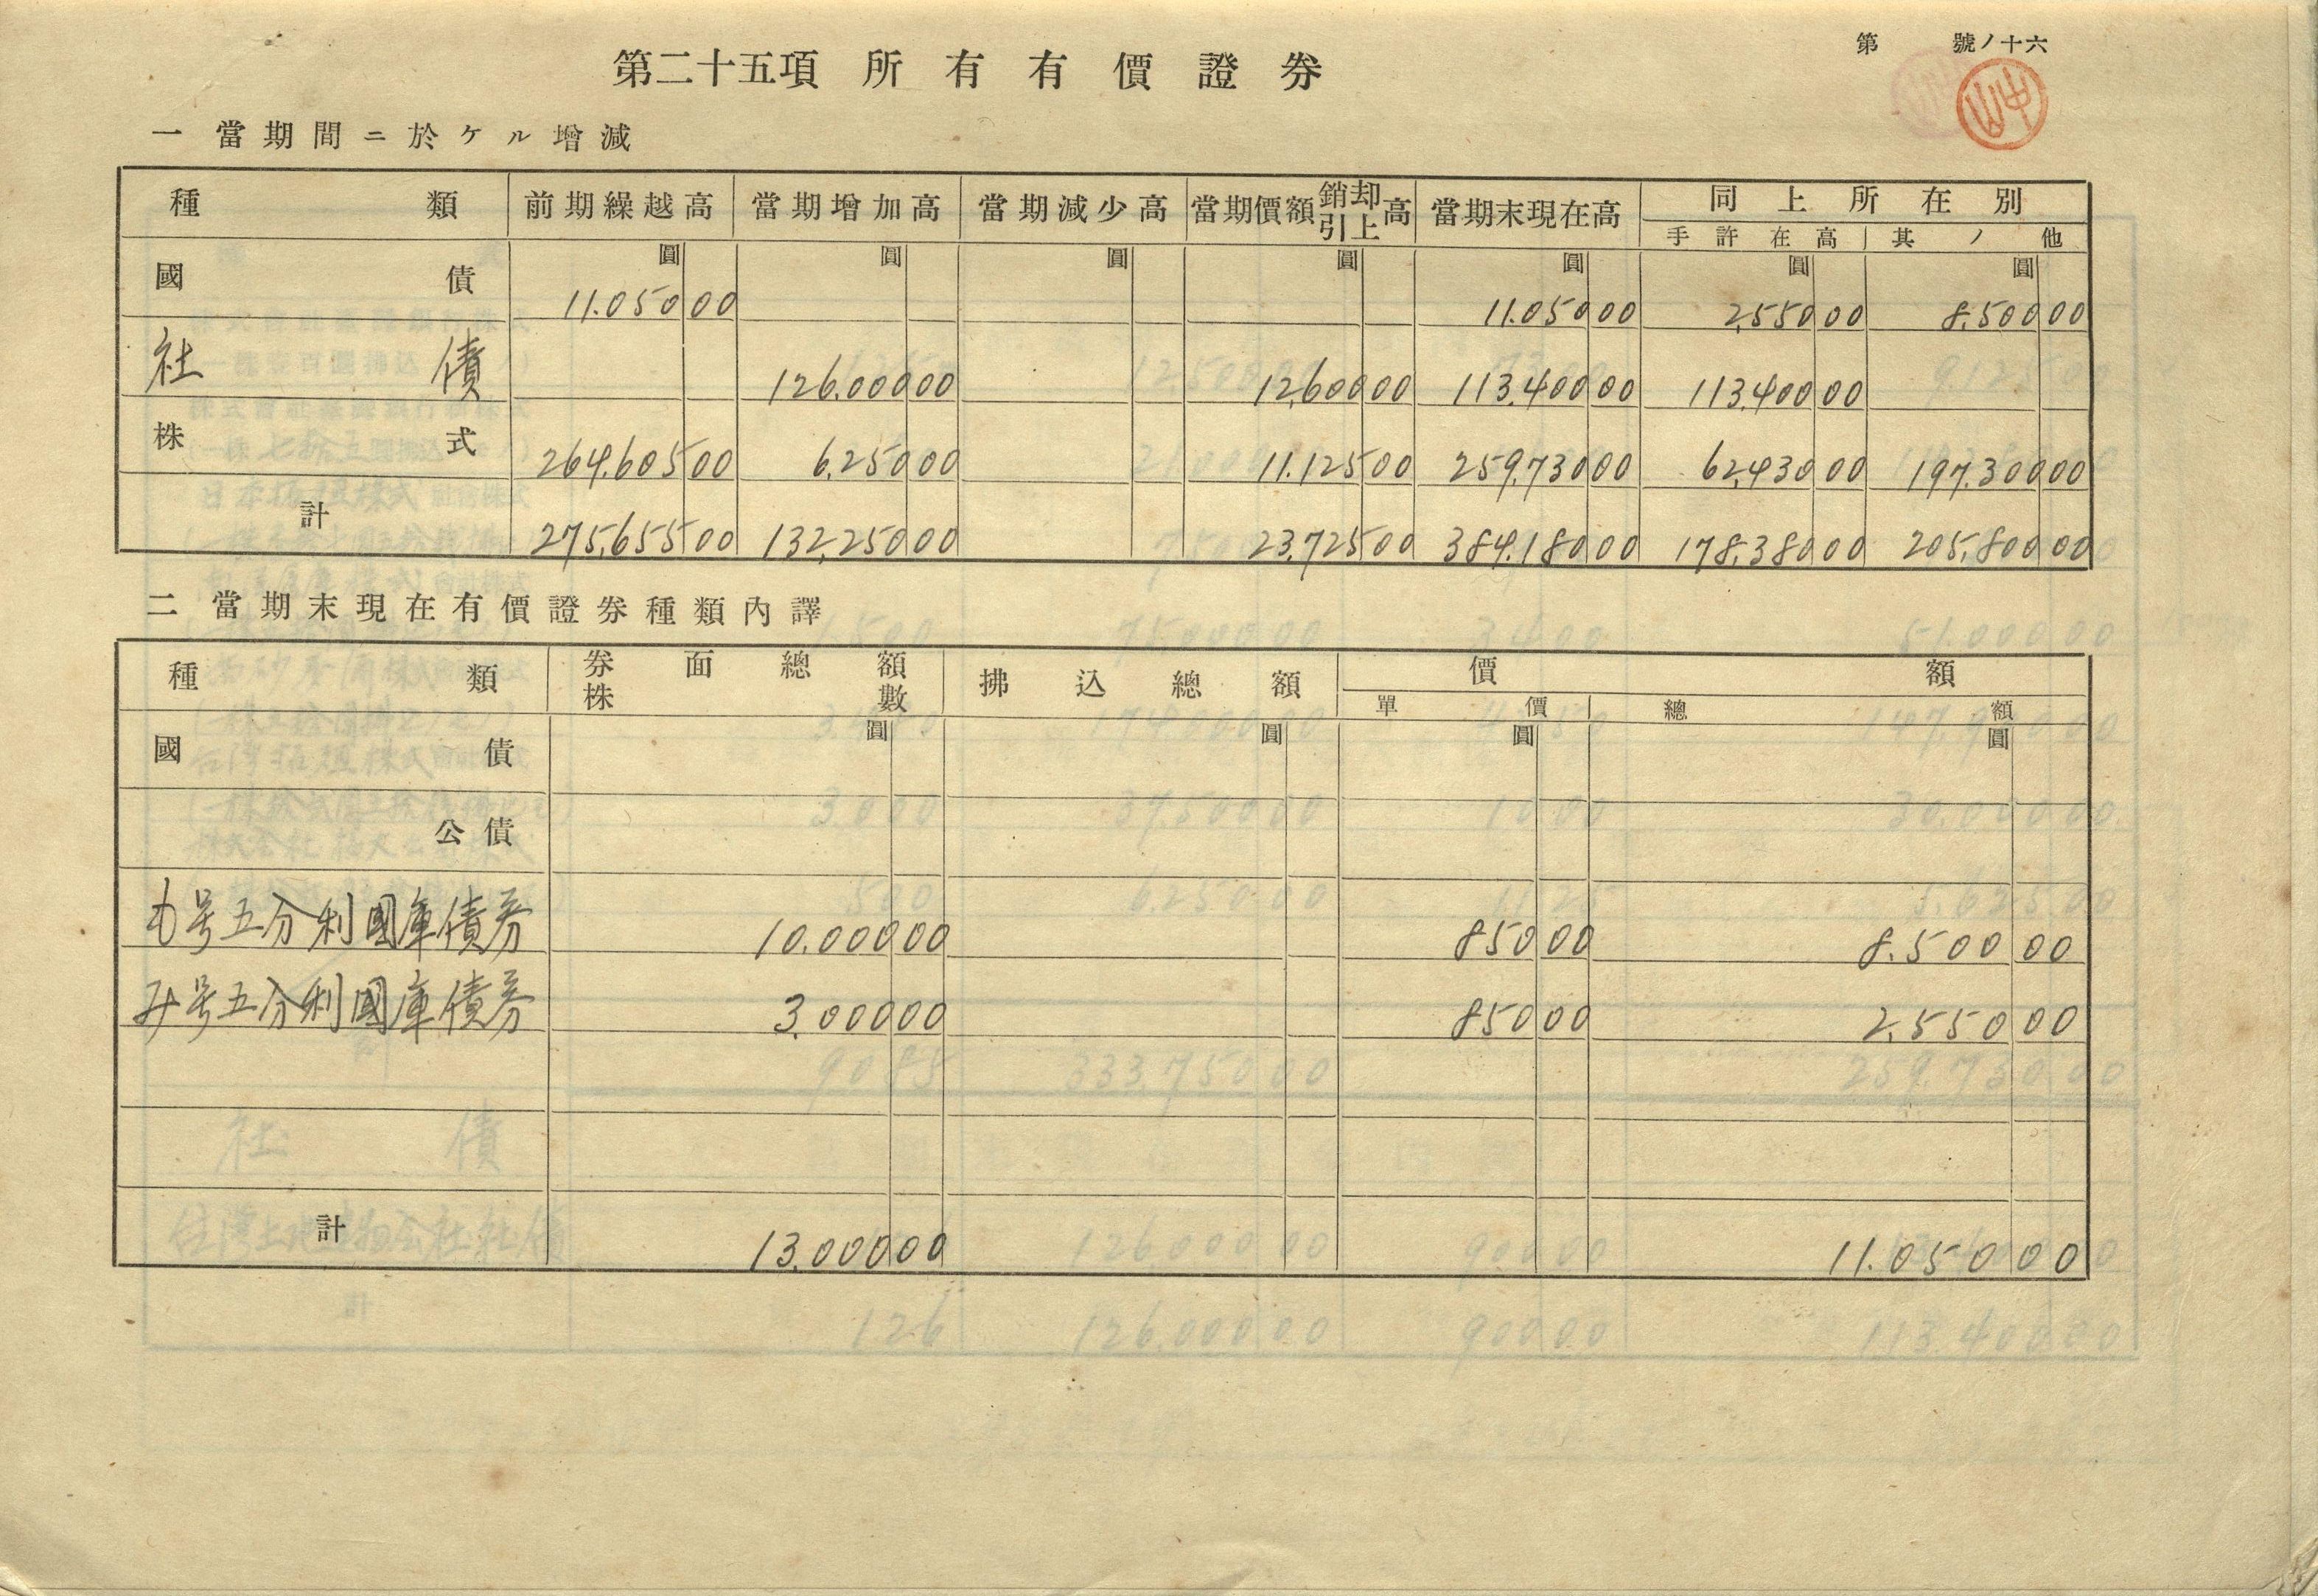 第　號ノ十六
第二十五項 所有有價證券
一 當期間ニ於ケル増減
種類 前期繰越高 當期增加高 當期減少高 當期價額銷却引上高 當期末現在高 同上所在別
手許在高 其ノ他
圓 圓 圓 圓 圓 圓 圓
國債 11.050 00 11.050 00 2,550 00 8,500 00
社債 126,000 00 12,600 00 113,400 00 113,400 00
株式 264,605 00 6,250 00 11,125 00 259,730 00 62,430 00 197,300 00
計 275,655 00 132,250 00 23,725 00 384,180 00 178,380 00 205,800 00
二 當期末現在有價證券種類內譯
種類 券面總額 株數 拂込總額 價額
單價 總額
圓 圓 圓 圓
國債
公債
も号五分利國庫債券 10.000 00 850 00 8.500 00
み号五分利國庫債券 3,000 00 850 00 2,550 00
計 13,000 00 11.050 00